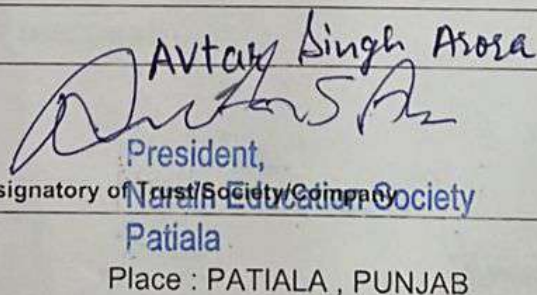 Avtar Singh Arora
President,
signatory of Trust/Society/Company
Narain Education Society
Patiala
Place : PATIALA , PUNJAB